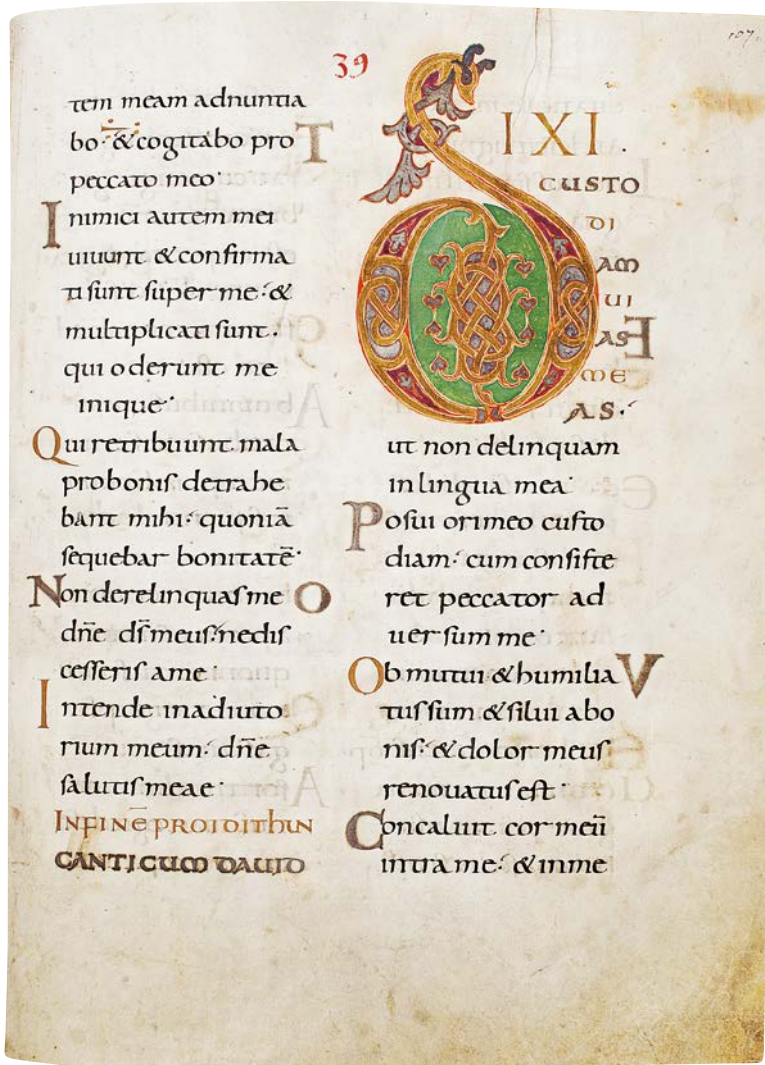 107.
39
tem meam adnuntia
bo· & cogitabo pro
peccato meo·
Inimici autem mei
uiuunt & confirma
ti sunt super me·& 
multiplicati sunt.
qui oderunt me
inique·
Qui retribuunt mala
pro bonis detrahe
bant mihi· quoniā
sequebar bonitatē·
Non derelinquas me
dn̄e ds̄ meus· nedis
cesseris ame·
Intende inadiuto
rium meum· dn̄e
salutis meae·
INFINĒ PROIDITHUN
CANTICUM DAUID
DIXI.
CUSTO
DI
AM
UI
AS
ME
AS·
ut non delinquam
in lingua mea·
Posui ori meo custo
diam· cum consiste
ret peccator ad
uersum me·
Obmutui & humilia
tus sum & silui abo
nis· & dolor meus
renouatus est·
Concaluit cor meū
intra me· & inme
T
O
E
V